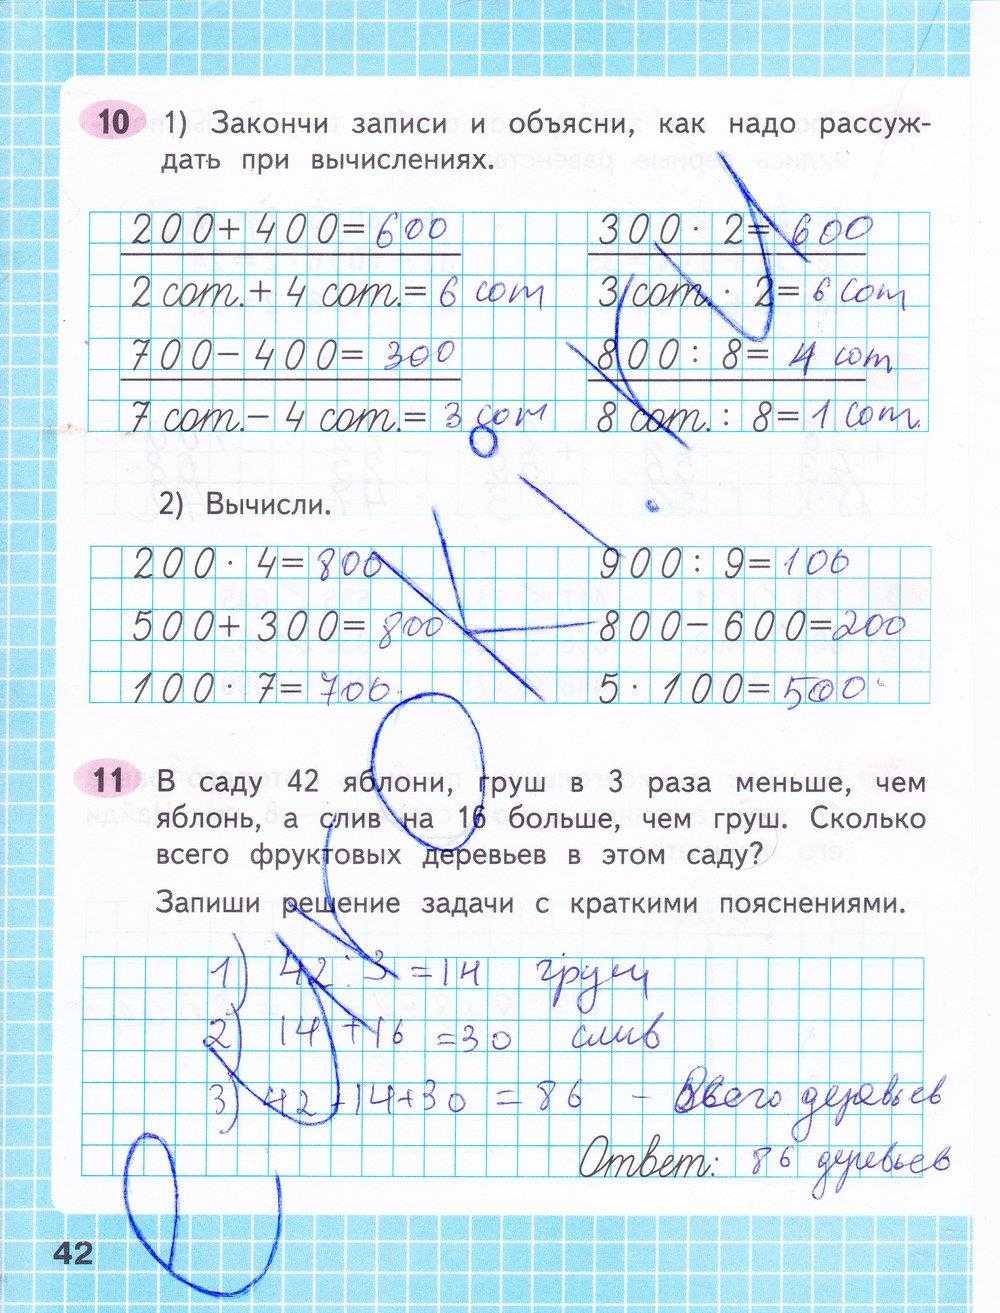 10 1) Закончи записи и объясни, как надо рассуж-
дать при вычислениях.
200+400=600 300·2=600
2 сот.+4 сот.=6 сот 3 сот.·2=6 сот
700-400=300 800:8=4 сот
7 сот.-4 сот.=3 сот 8 сот.:8=1 сот.
2) Вычисли.
200·4=800 900:9=100
500+300=800 800-600=200
100·7=700. 5·100=500
11 В саду 42 яблони, груш в 3 раза меньше, чем
яблонь, а слив на 16 больше, чем груш. Сколько
всего фруктовых деревьев в этом саду?
Запиши решение задачи с краткими пояснениями.
1) 42:3=14 груш
2) 14+16=30 слив
3) 42+14+30=86 - Всего деревьев
Ответ: 86 деревьев
42